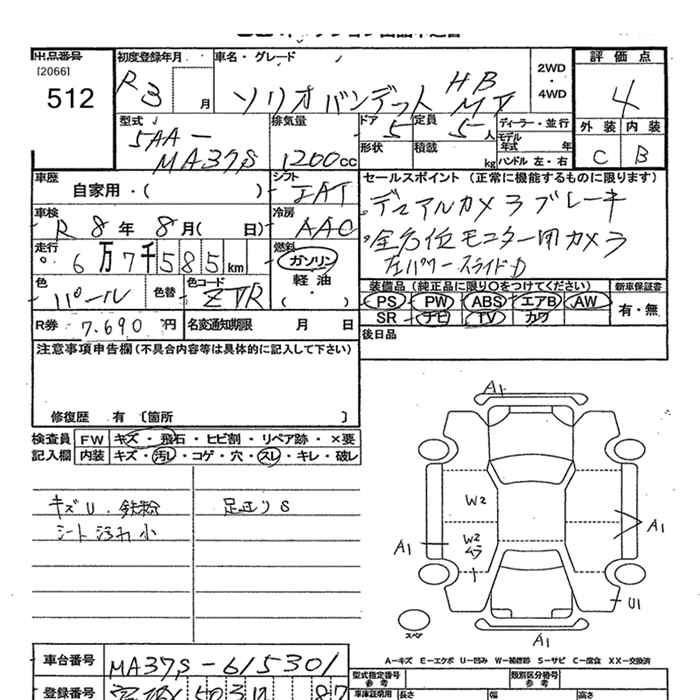 出品番号
[2066]
512
初度登録年月
R 3 月
車名・グレード
ソリオバンデット HB MV
2WD
・
4WD
評価点
4
外装 内装
C B
型式
5AA-
MA37S
排気量
1200cc
ドア 5
定員 5人
ディーラー・並行
モデル
年式 年
形状
積載 kg
ハンドル 左・右
車歴
自家用・( )
シフト
IAT
セールスポイント (正常に機能するものに限ります)
デュアルカメラブレーキ
全方位モニター用カメラ
左パワースライドD
車検
R 8年 8月( 日)
冷房
AAC
走行
6万7千585km
燃料
ガソリン
軽油
・( )
色
パール
色替
色コード
ZVR
装備品 (純品に限り○をつけてください)
新車保証書
PS PW ABS エアB AW
SR ナビ TV カワ
有・無
R券 7,690円
名変通知期限 月 日
後日品
注意事項申告欄(不具合内容等は具体的に記入して下さい)
修復歴 有 〔箇所 〕
検査員 FW キズ・飛石・ヒビ割・リペア跡・×要
記入欄 内装 キズ・汚れ・コゲ・穴・スレ・キレ・破れ
キズU. 鉄粉
シート汚れ小
足廻りS
A1
W2
W2
ムラ
A1
A1
U1
A1
スペア
A-キズ E-エクボ U-凹み W-補修跡 S-サビ C-腐食 XX-交換済
車台番号
MA37S-615301
型式指定番号
参考
類別区分番号
参考
登録番号
車庫証明用
長さ
幅
高さ